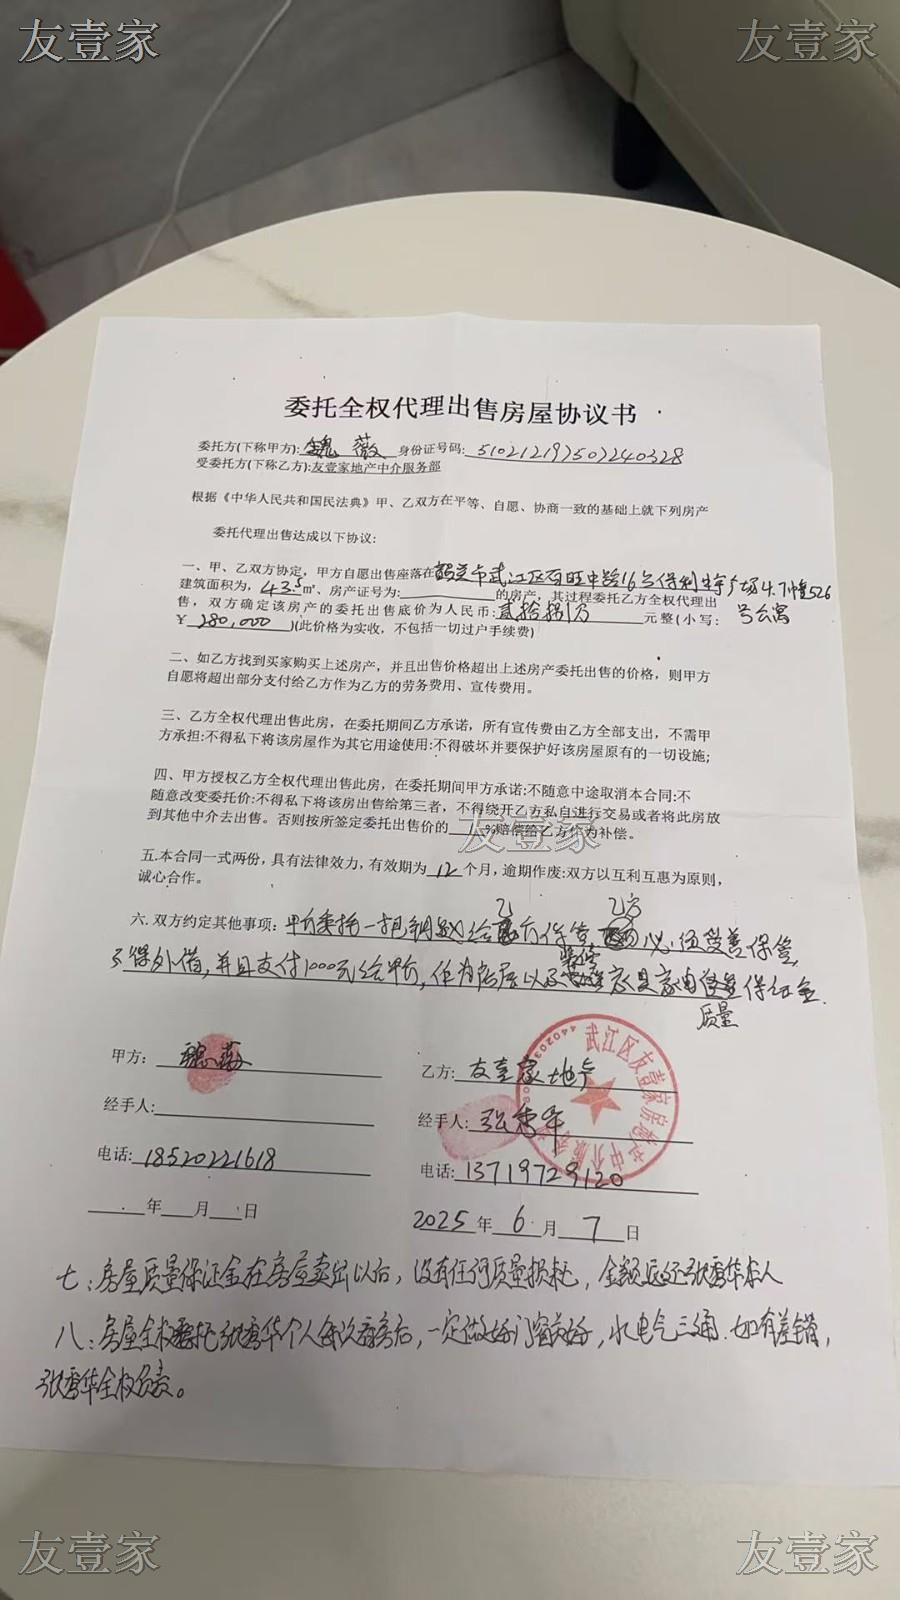 友壹家
友壹家
委托全权代理出售房屋协议书
委托方(下称甲方): 魏薇 身份证号码: 510212197502240328
受委托方(下称乙方):友壹家地产中介服务部
根据《中华人民共和国民法典》甲、乙双方在平等、自愿、协商一致的基础上就下列房产
委托代理出售达成以下协议:
一、甲、乙双方协定，甲方自愿出售座落在韶关市武江区百旺中路16号保利 广场4.7幢526
号公寓
建筑面积为，43.5㎡、房产证号为: 的房产，其过程委托乙方全权代理出
售，双方确定该房产的委托出售底价为人民币:贰拾捌万 元整(小写:
￥ 280,000 )(此价格为实收，不包括一切过户手续费)
二、如乙方找到买家购买上述房产，并且出售价格超出上述房产委托出售的价格，则甲方
自愿将超出部分支付给乙方作为乙方的劳务费用、宣传费用。
三、乙方全权代理出售此房，在委托期间乙方承诺，所有宣传费由乙方全部支出，不需甲
方承担:不得私下将该房屋作为其它用途使用:不得破坏并要保护好该房屋原有的一切设施;
四、甲方授权乙方全权代理出售此房，在委托期间甲方承诺:不随意中途取消本合同:不
随意改变委托价:不得私下将该房出售给第三者，不得绕开乙方私自进行交易或者将此房放
到其他中介去出售。否则按所签定委托出售价的 %赔偿给乙方作为补偿。
友壹家
五.本合同一式两份，具有法律效力，有效期为 12 个月，逾期作废:双方以互利互惠为原则，
诚心合作。
六.双方约定其他事项: 甲方委托一把钥匙给乙方保管，乙方必须妥善保管，
不得外借，并且支付1000元给甲方，作为房屋以及装修 家具家电质量保证金.
甲方: 魏薇
乙方: 友壹家地产
武江区友壹家房地产中介服务部
经手人:
经手人: 张秀华
电话: 18520221618
电话: 13719729120
年 月 日
2025 年 6 月 7 日
七：房屋质量保证金在房屋卖出以后，没有任何质量损耗，全额退还张秀华本人
八：房屋全权委托张秀华个人每次看房后，一定做好门窗关好，水电气三通.如有差错，
张秀华全权负责。
友壹家
友壹家